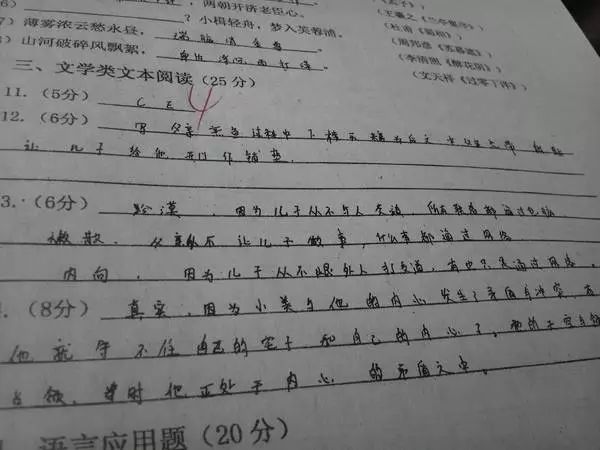 6) ？小楫轻舟，梦入芙蓉浦。
两朝开济老臣心。
7) 薄雾浓云愁永昼，瑞脑消金兽。
8) 山河破碎风飘絮，身世浮沉雨打萍。
《孟子》）
（王羲之《兰亭集序》）
（杜甫《蜀相》）
（周邦彦《苏幕遮》）
（李清照《醉花阴》）
（文天祥《过零丁洋》）
三、文学类文本阅读（25 分）
11.（5分） C E
12.（6分） 写 父亲 过程中
让 儿子 给他 开门作铺垫.
3.（6分） 冷漠. 因为儿子从不与人交谈，所有 都通过电脑
懒散. 父亲从不让儿子做事，什么事都通过网络
内向. 因为儿子从不跟外人打交道，有也只是通过网络.
（8分） 真实.因为小美与他的内心发生了矛盾与冲突，
他就守不住自己的 和自己的内心了，
占领. 当时他正处于内心的矛盾之中。
语言应用题（20 分）